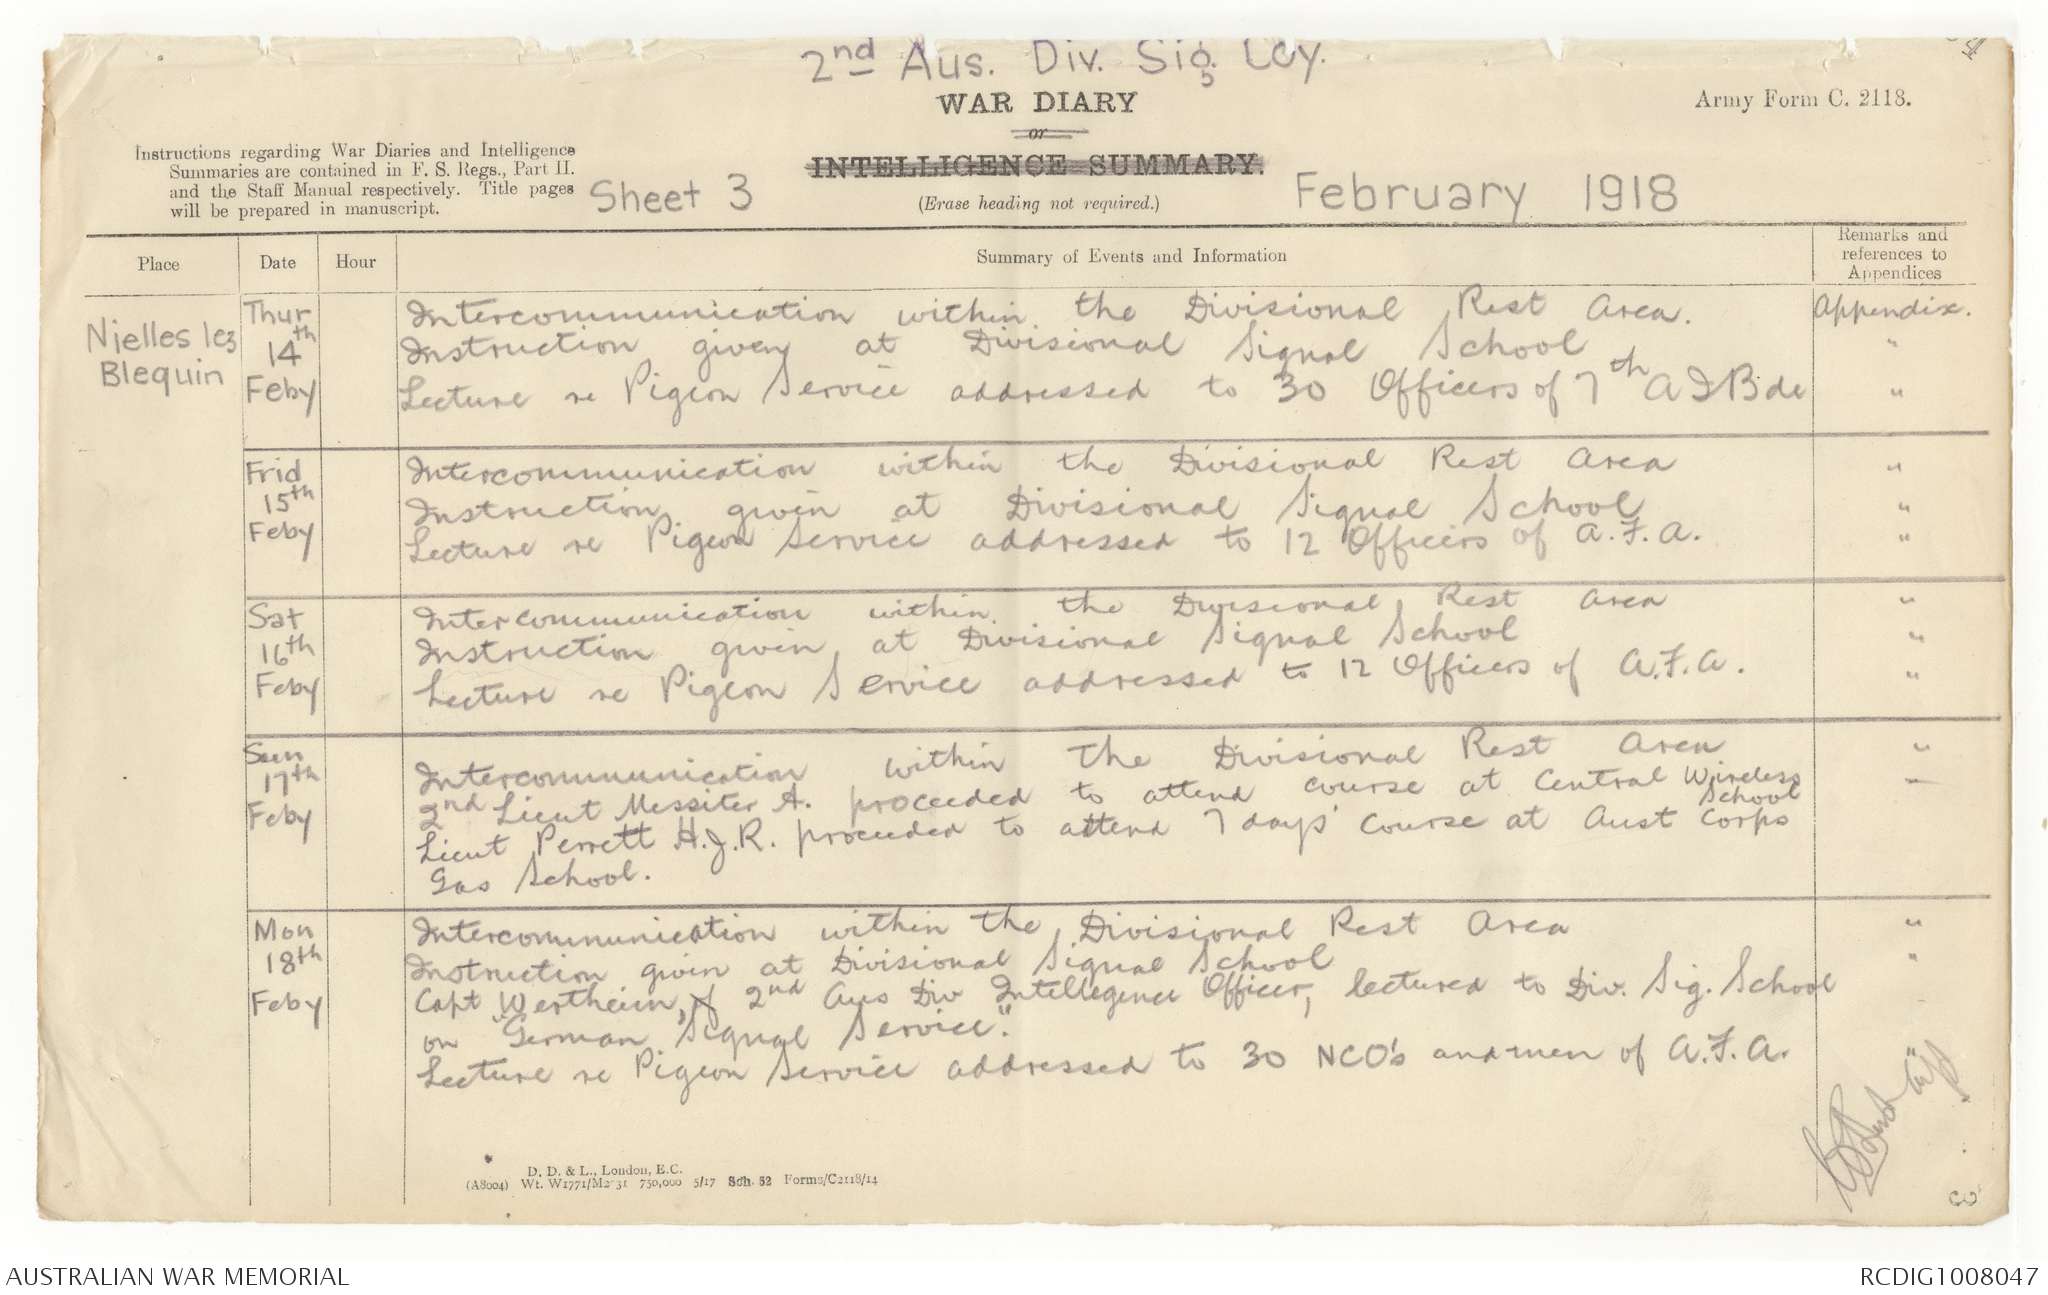 2nd Aus. Div. Sig. Coy.
WAR DIARY
or
INTELLIGENCE SUMMARY.
(Erase heading not required.)
Army Form C. 2118.
Instructions regarding War Diaries and Intelligence
Summaries are contained in F. S. Regs., Part II.
and the Staff Manual respectively. Title pages
will be prepared in manuscript.
Sheet 3
February 1918
Place
Date
Hour
Summary of Events and Information
Remarks and
references to
Appendices
Nielles lez
Blequin
Thur
14th
Feby
Intercommunication within the Divisional Rest Area. Appendix.
Instruction given at Divisional Signal School "
Lecture re Pigeon Service addressed to 30 Officers of 7th A I Bde "
Frid
15th
Feby
Intercommunication within the Divisional Rest Area "
Instruction given at Divisional Signal School "
Lecture re Pigeon Service addressed to 12 Officers of A.F.A. "
Sat
16th
Feby
Intercommunication within the Divisional Rest Area "
Instruction given at Divisional Signal School "
Lecture re Pigeon Service addressed to 12 Officers of A.F.A. "
Sun
17th
Feby
Intercommunication within the Divisional Rest Area "
2nd Lieut Messiter A. proceeded to attend course at Central Wireless School —
Lieut Perrett H.J.R. proceeded to attend 7 days' course at Aust Corps
Gas School.
Mon
18th
Feby
Intercommunication within the Divisional Rest Area "
Instruction given at Divisional Signal School "
Capt Wertheim, of 2nd Aus Div Intellegence Officer, lectured to Div. Sig. School
on "German Signal Service".
Lecture re Pigeon Service addressed to 30 NCO's and men of A.F.A. "
D. D. & L., London, E.C.
(A8004) Wt. W1771/M2 31 750,000 5/17 Sch. 52 Forms/C2118/14
3
AUSTRALIAN WAR MEMORIAL
RCDIG1008047